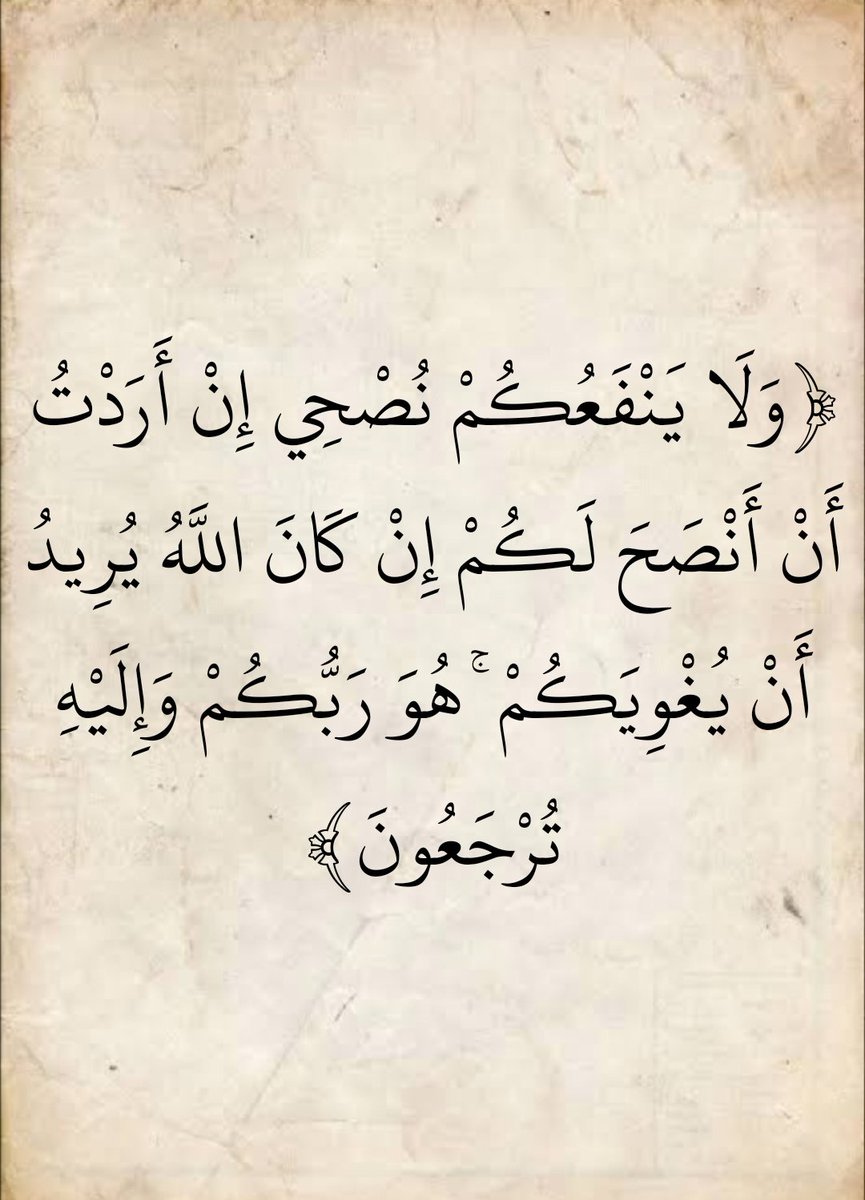 ﴿وَلَا يَنْفَعُكُمْ نُصْحِي إِنْ أَرَدْتُ
أَنْ أَنْصَحَ لَكُمْ إِنْ كَانَ اللَّهُ يُرِيدُ
أَنْ يُغْوِيَكُمْ ۚ هُوَ رَبُّكُمْ وَإِلَيْهِ
تُرْجَعُونَ﴾